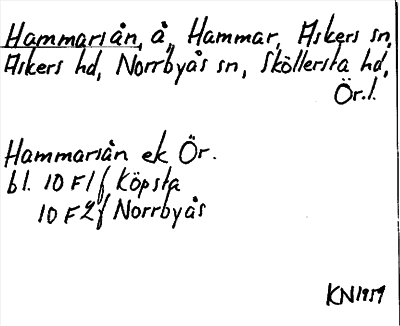 Hammarsån, å, Hammar, Askers sn,
Askers hd, Norrbyås sn, Sköllersta hd,
Ör. l.
Hammarsån ek Ör.
bl. 10 F1 f Köpsta
10 F2 f Norrbyås
KN 1959